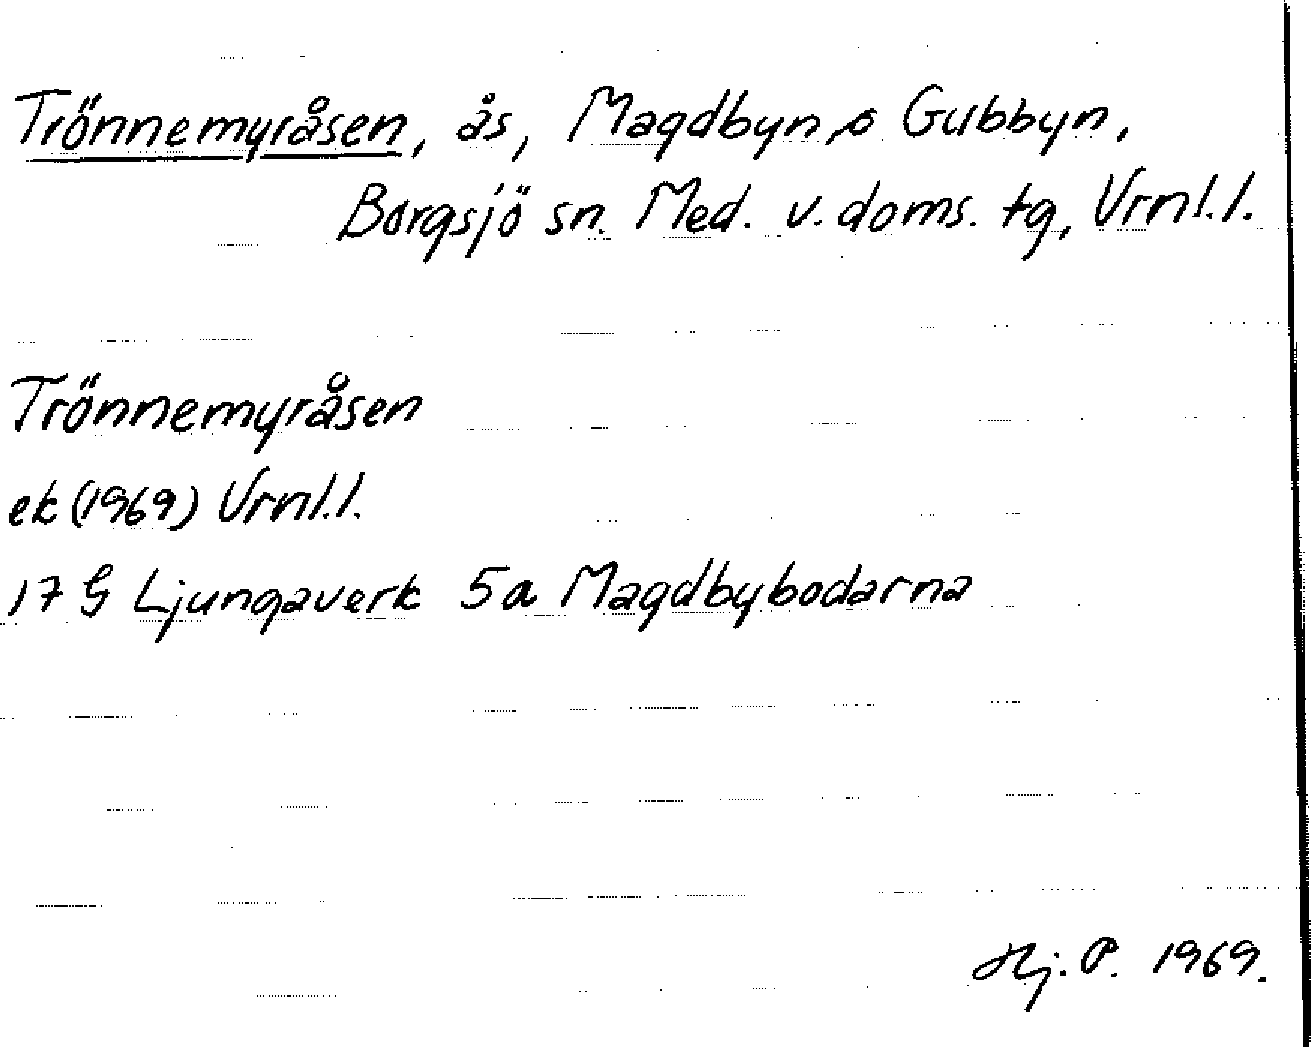 Trönnemyråsen, ås, Magdbyn o Gubbyn,
Borgsjö sn. Med. v. doms. tg, Vrml.l.
Trönnemyråsen
ek (1969) Vrml.l.
17 G Ljungaverk 5a Magdbybodarna
Hj. P. 1969.